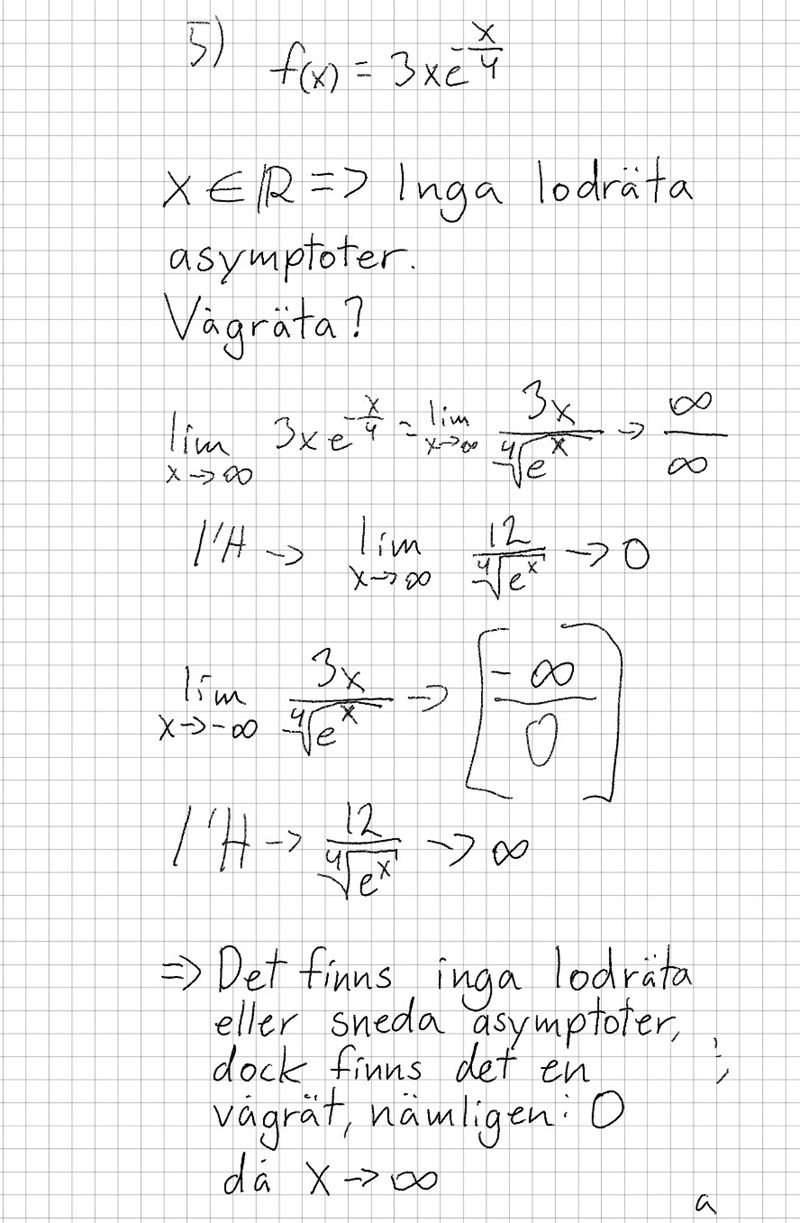 5) f(x) = 3xe^{-\frac{x}{4}}
x ∈ ℝ => Inga lodräta
asymptoter.
Vågräta?
lim_{x→∞} 3xe^{-\frac{x}{4}} = lim_{x→∞} \frac{3x}{\sqrt[4]{e^x}} → \frac{∞}{∞}
l'H → lim_{x→∞} \frac{12}{\sqrt[4]{e^x}} → 0
lim_{x→-∞} \frac{3x}{\sqrt[4]{e^x}} → [\frac{-∞}{0}]
l'H → \frac{12}{\sqrt[4]{e^x}} → ∞
=> Det finns inga lodräta
eller sneda asymptoter,
dock finns det en
vågrät, nämligen: 0
då x → ∞
a